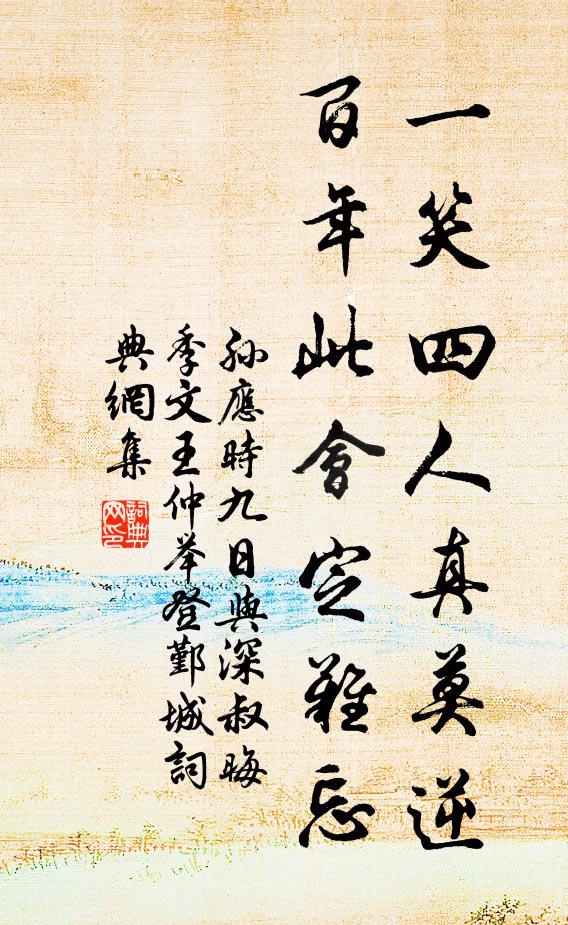 一笑四人真莫逆
百年此會定難忘
孫應時九日與深叔晦
季文王仲举登鄞城詞
典網集
詞典
网印